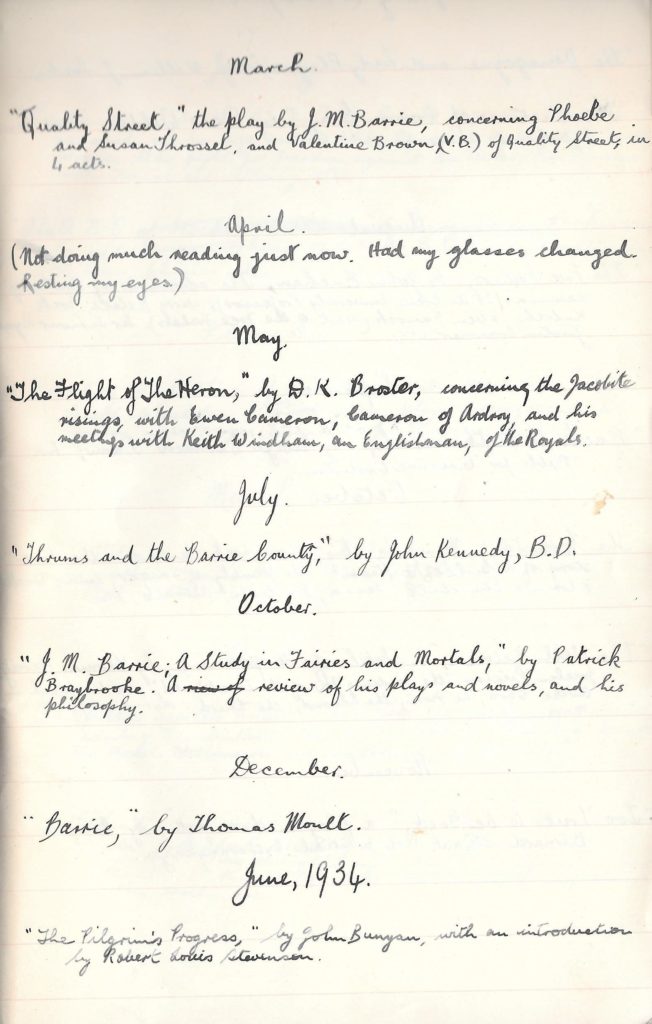 March.
"Quality Street," the play by J.M. Barrie, concerning Phoebe
and Susan Throssel, and Valentine Brown, (V.B.) of Quality Street, in
4 acts.
April.
(Not doing much reading just now. Had my glasses changed.
Resting my eyes.)
May.
"The Flight of The Heron," by D. K. Broster, concerning the Jacobite
risings, with Ewen Cameron, Cameron of Ardroy, and his
meetings with Keith Windham, an Englishman, of the Royals.
July.
"Thrums and the Barrie County," by John Kennedy, B.D.
October.
"J. M. Barrie; A Study in Fairies and Mortals," by Patrick
Braybrooke. A view of review of his plays and novels, and his
philosophy.
December.
"Barrie," by Thomas Moult.
June, 1934.
"The Pilgrim's Progress," by John Bunyan, with an introduction
by Robert Louis Stevenson.